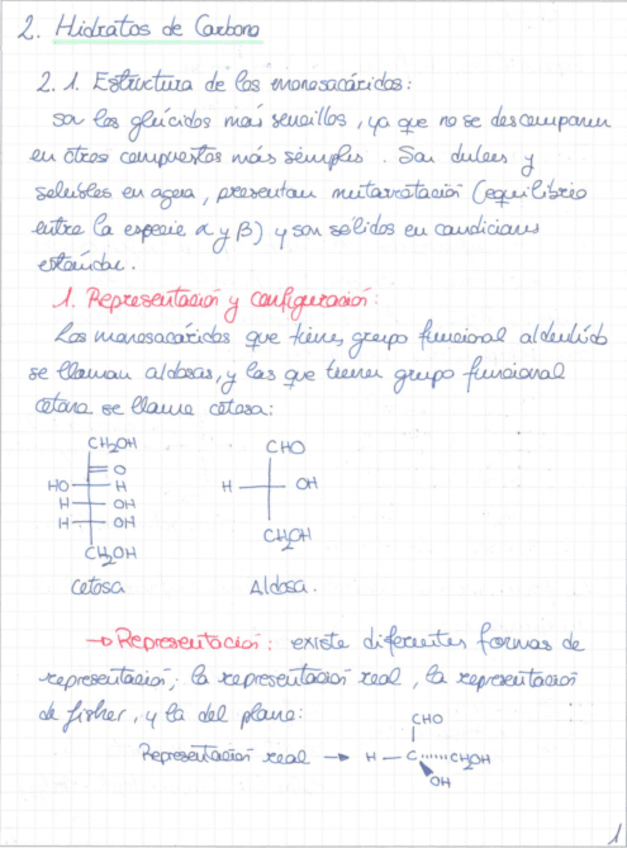 2. Hidratos de Carbono
2.1. Estructura de los monosacáridos:
son los glúcidos más sencillos, ya que no se descomponen
en otros compuestos más simples. Son dulces y
solubles en agua, presentan mutarrotación (equilibrio
entre la especie α y β) y son sólidos en condiciones
estándar.
1. Representación y configuración:
Los monosacáridos que tiene, grupo funcional aldehído
se llaman aldosas, y las que tienen grupo funcional
cetona se llama cetosa:
CH2OH
O
HO H
H OH
H OH
CH2OH
Cetosa
CHO
H OH
CH2OH
Aldosa.
→ Representación: existe diferentes formas de
representación; la representación real, la representación
de fisher, y la del plano:
CHO
Representación real → H — C CH2OH
OH
1